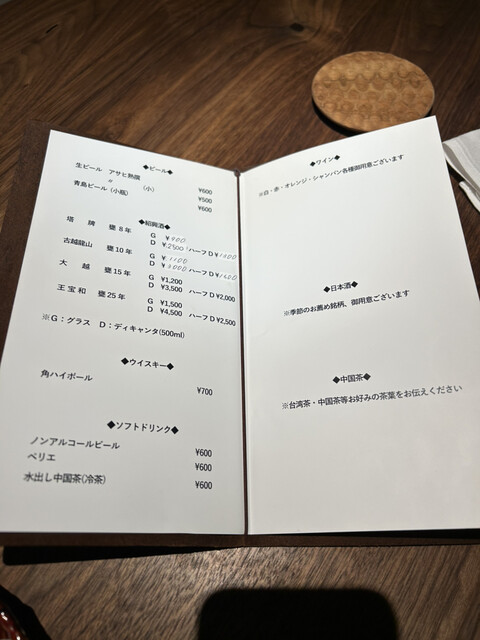 ◆ビール◆
生ビール アサヒ熟撰 ¥600
〃 (小) ¥500
青島ビール (小瓶) ¥600
◆紹興酒◆
塔 牌 甕8年 G ¥900
D ¥2500 ハーフD¥1300
古越龍山 甕10年 G ¥1100
D ¥3000 ハーフD¥1600
大 越 甕15年 G ¥1,200
D ¥3,500 ハーフD ¥2,000
王宝和 甕25年 G ¥1,500
D ¥4,500 ハーフD ¥2,500
※G:グラス D:ディキャンタ(500ml)
◆ウイスキー◆
角ハイボール ¥700
◆ソフトドリンク◆
ノンアルコールビール ¥600
ペリエ ¥600
水出し中国茶(冷茶) ¥600
◆ワイン◆
※白・赤・オレンジ・シャンパン各種御用意ございます
◆日本酒◆
※季節のお薦め銘柄、御用意ございます
◆中国茶◆
※台湾茶・中国茶等お好みの茶葉をお伝えください